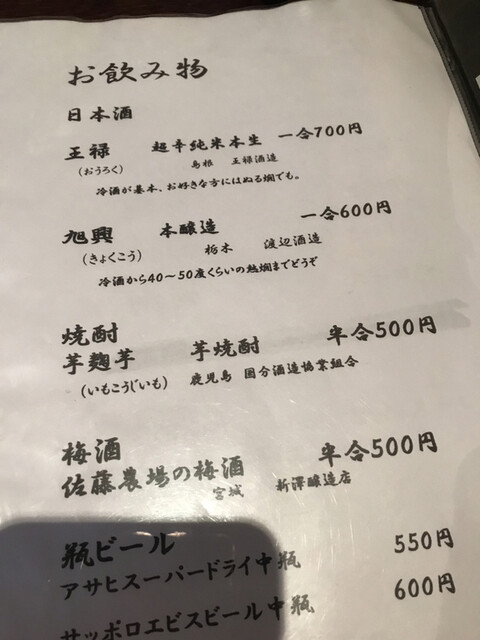 お飲み物
日本酒
王禄 超辛純米本生 一合700円
(おうろく) 島根 王禄酒造
冷酒が基本、お好きな方にはぬる燗でも。
旭興 本醸造 一合600円
(きょくこう) 栃木 渡辺酒造
冷酒から40~50度くらいの熱燗までどうぞ
焼酎
芋麹芋 芋焼酎 半合500円
(いもこうじいも) 鹿児島 国分酒造協業組合
梅酒
佐藤農場の梅酒 半合500円
宮城 新澤醸造店
瓶ビール
アサヒスーパードライ中瓶 550円
サッポロエビスビール中瓶 600円